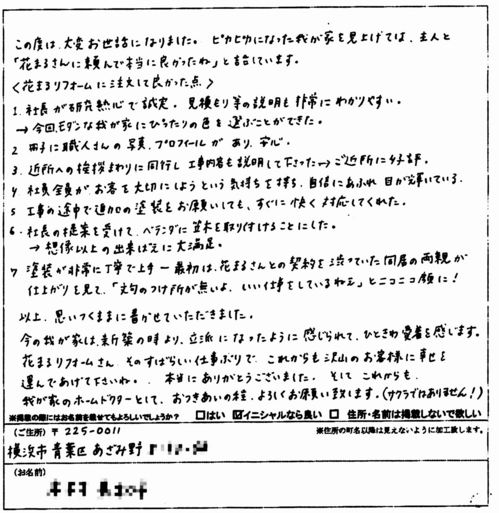 この度は、大変お世話になりました。ピカピカになった我が家を見上げては、主人と
「花まるさんに頼んで本当に良かったね」と話しています。
〈花まるリフォームに注文して良かった点〉
1. 社長が研究熱心で誠実。見積もり等の説明も非常にわかりやすい。
→今回、モダンな我が家にぴったりの色を選ぶことができた。
2 冊子に職人さんの写真、プロフィールがあり、安心。
3. 近所への挨拶まわりに同行し工事内容も説明して下さった→ご近所に好評。
4 社員全員がお客を大切にしようという気持ちを持ち、自信にあふれ目が輝いている。
5 工事の途中で追加の塗装をお願いしても、すぐに快く対応してくれた。
6. 社長の提案を受けて、ベランダに笠木を取り付けることにした。
→想像以上の出来ばえに大満足。
7 塗装が非常に丁寧で上手ー最初は、花まるさんとの契約を渋っていた同居の両親が
仕上がりを見て、「文句のつけ所が無いよ、いい仕事をしているねェ」とニコニコ顔に!
以上、思いつくままに書かせていただきました。
今の我が家は、新築の時より、立派になったように感じられて、ひときわ愛着を感じます。
花まるリフォームさん、そのすばらしい仕事ぶりで、これからも沢山のお客様に幸せを
運んであげて下さいね。. 本当にありがとうございました。そして、これからも、
我が家のホームドクターとして、おつきあいの程、よろしくお願い致します。(サクラではありません!)
※掲載の際にはお名前を載せてもよろしいでしょうか? □はい ☑イニシャルなら良い □ 住所・名前は掲載しないで欲しい
(ご住所) 〒 225-0011 ※住所の町名以降は見えないように加工致します。
横浜市 青葉区 あざみ野
(お名前)